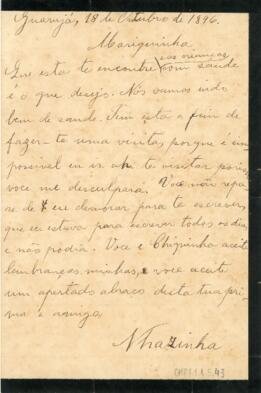 Guarujá, 18 de Outubro de 1896.
Mariquinha
e as crianças
Que esta te encontre com saude
é o que desejo. Nós vamos indo
bem de saude. Tem esta o fim de
fazer-te uma visita, porque é im
possivel eu ir ahi te visitar porisso
voce me desculpará. Voce não repa
re de eu demorar para te escrever,
que eu estava para escrever todos os dias
e não podia. Voce e Chiquinho aceite
lembranças minhas, e voce aceite
um apertado abraço desta tua pri
ma e amiga
Nhazinha